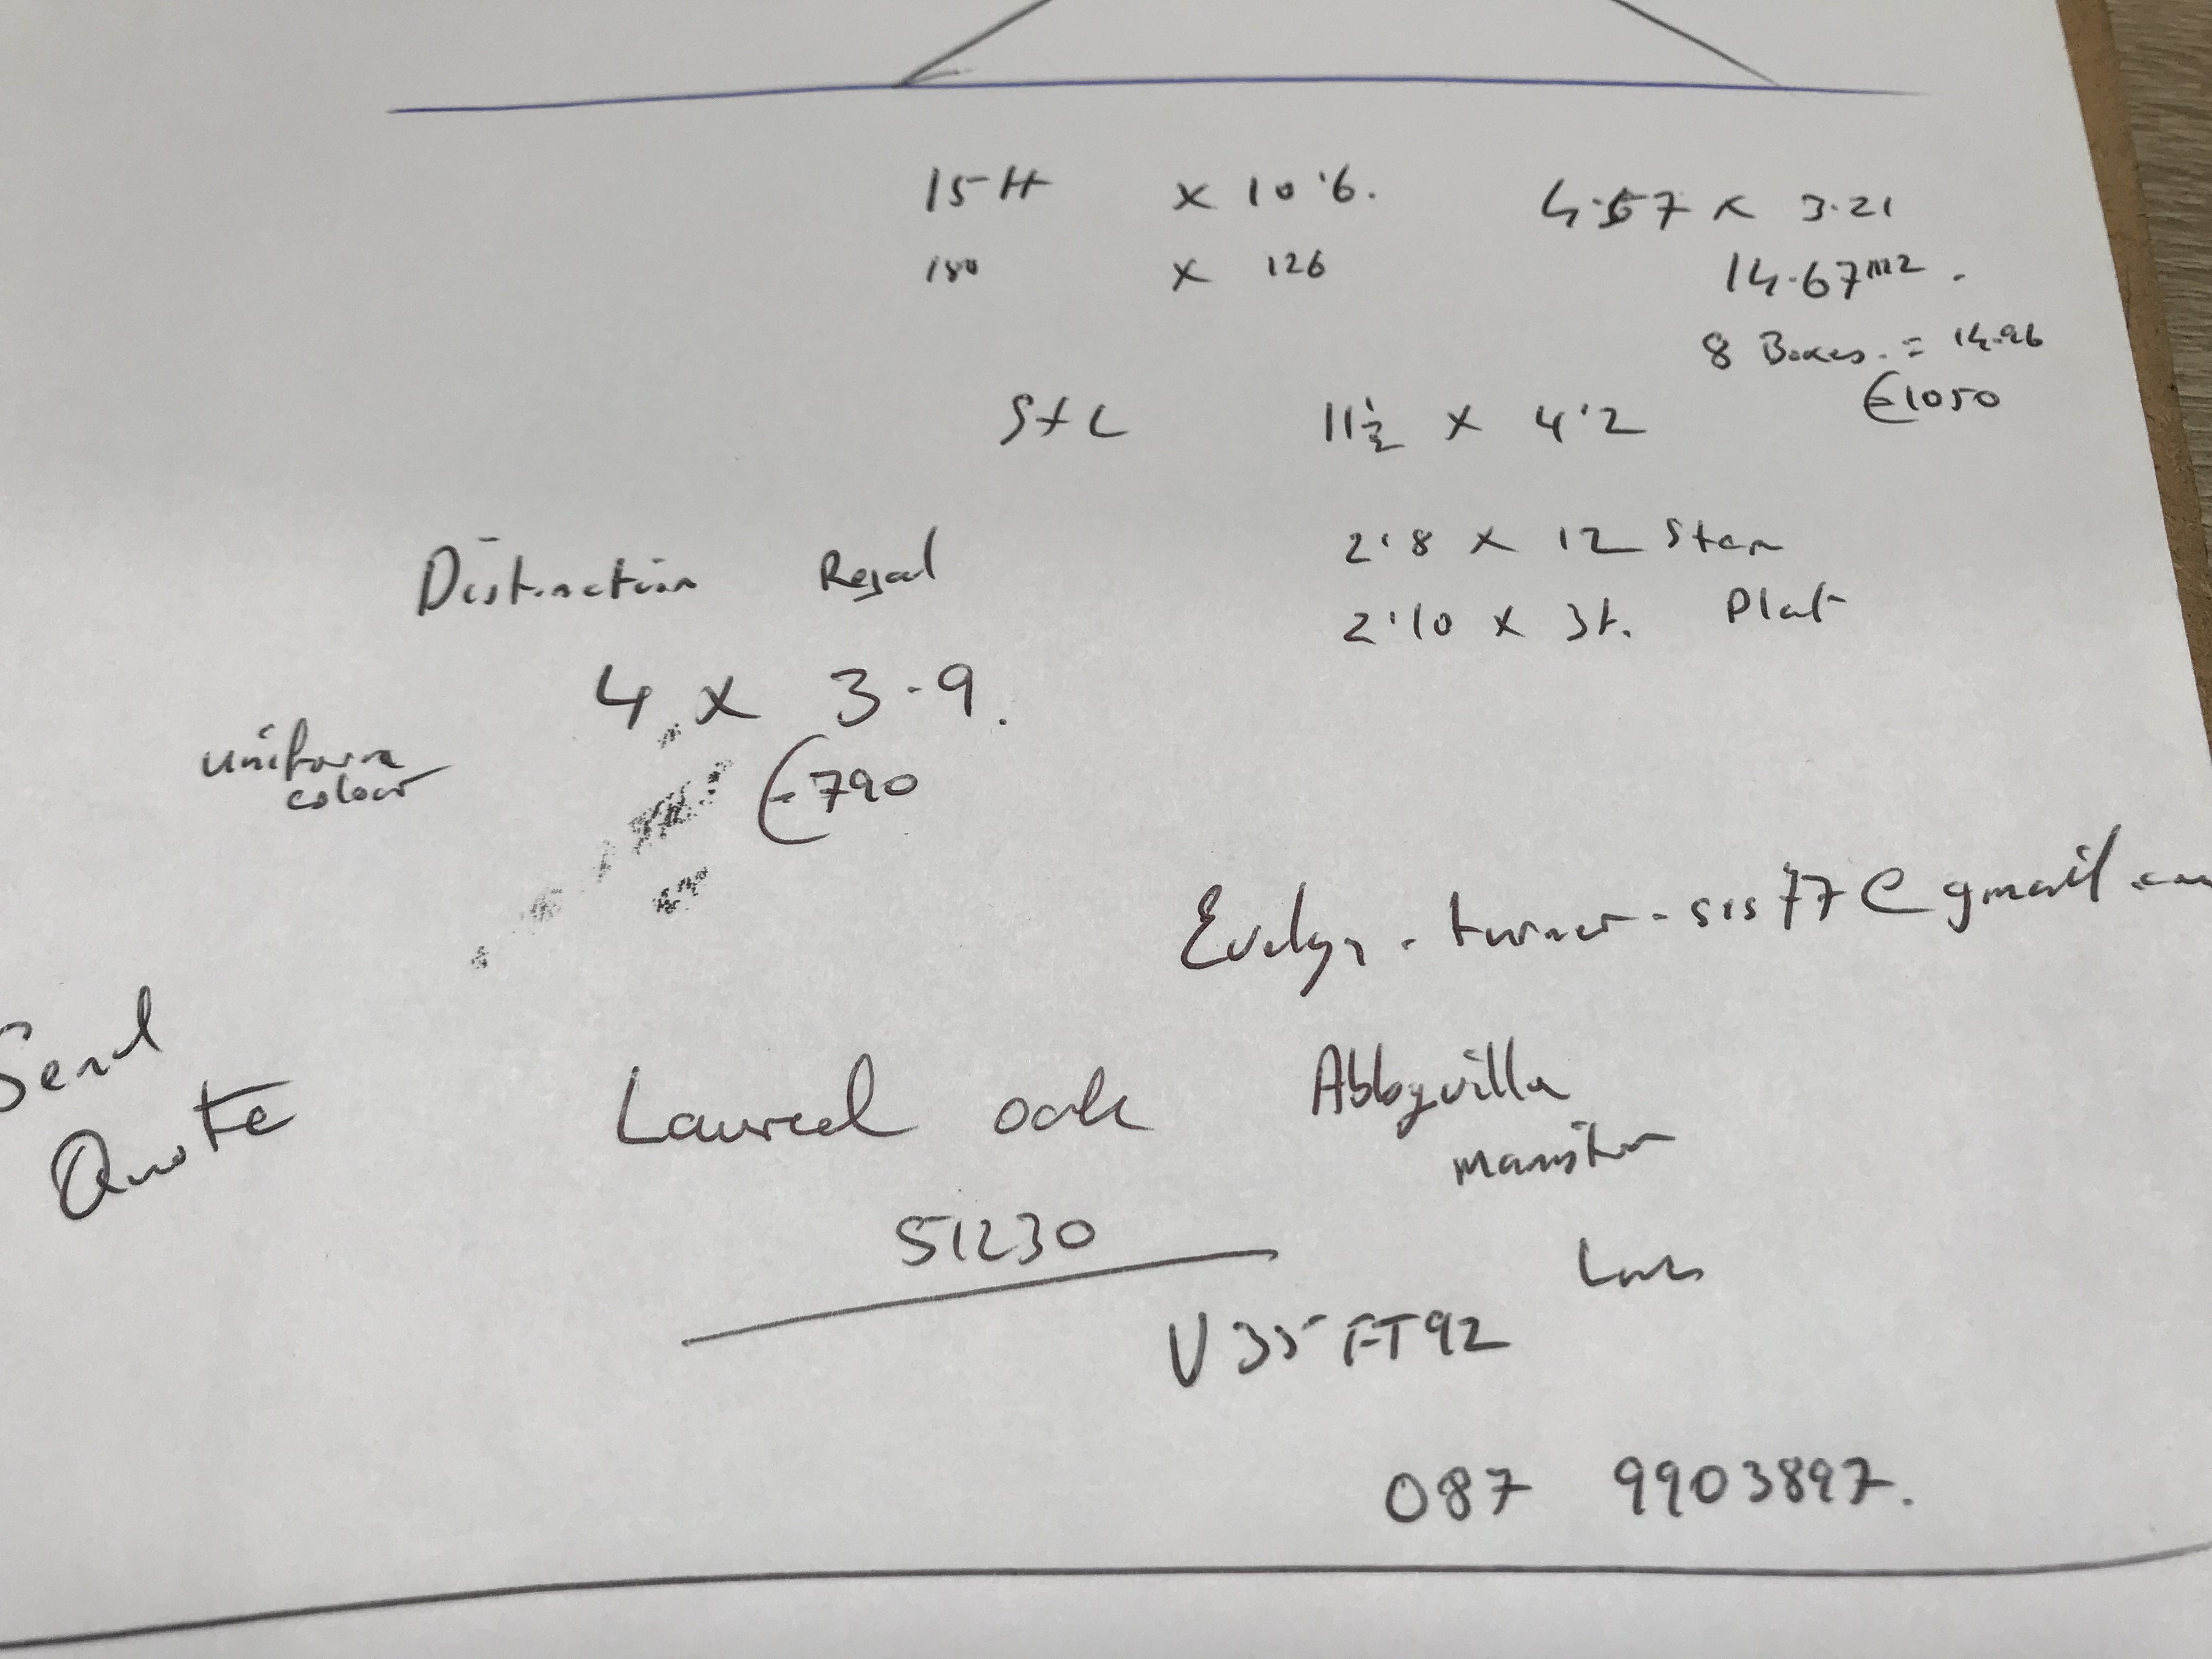 15ft x 10'6. 4.57 x 3.21
180 x 126 14.67m2.
8 Boxes. = 14.96
€1050
S+L 11½ x 4'2
2'8 x 12 Stair
2'10 x 3ft. Plat
Distinction Regal
4 x 3.9.
uniform
colour
€790
Evelyn.turner-sis77@gmail.com
Send
Quote
Laurel oak
51230
Abbyvilla
Manister
V35 FT92
087 9903897.